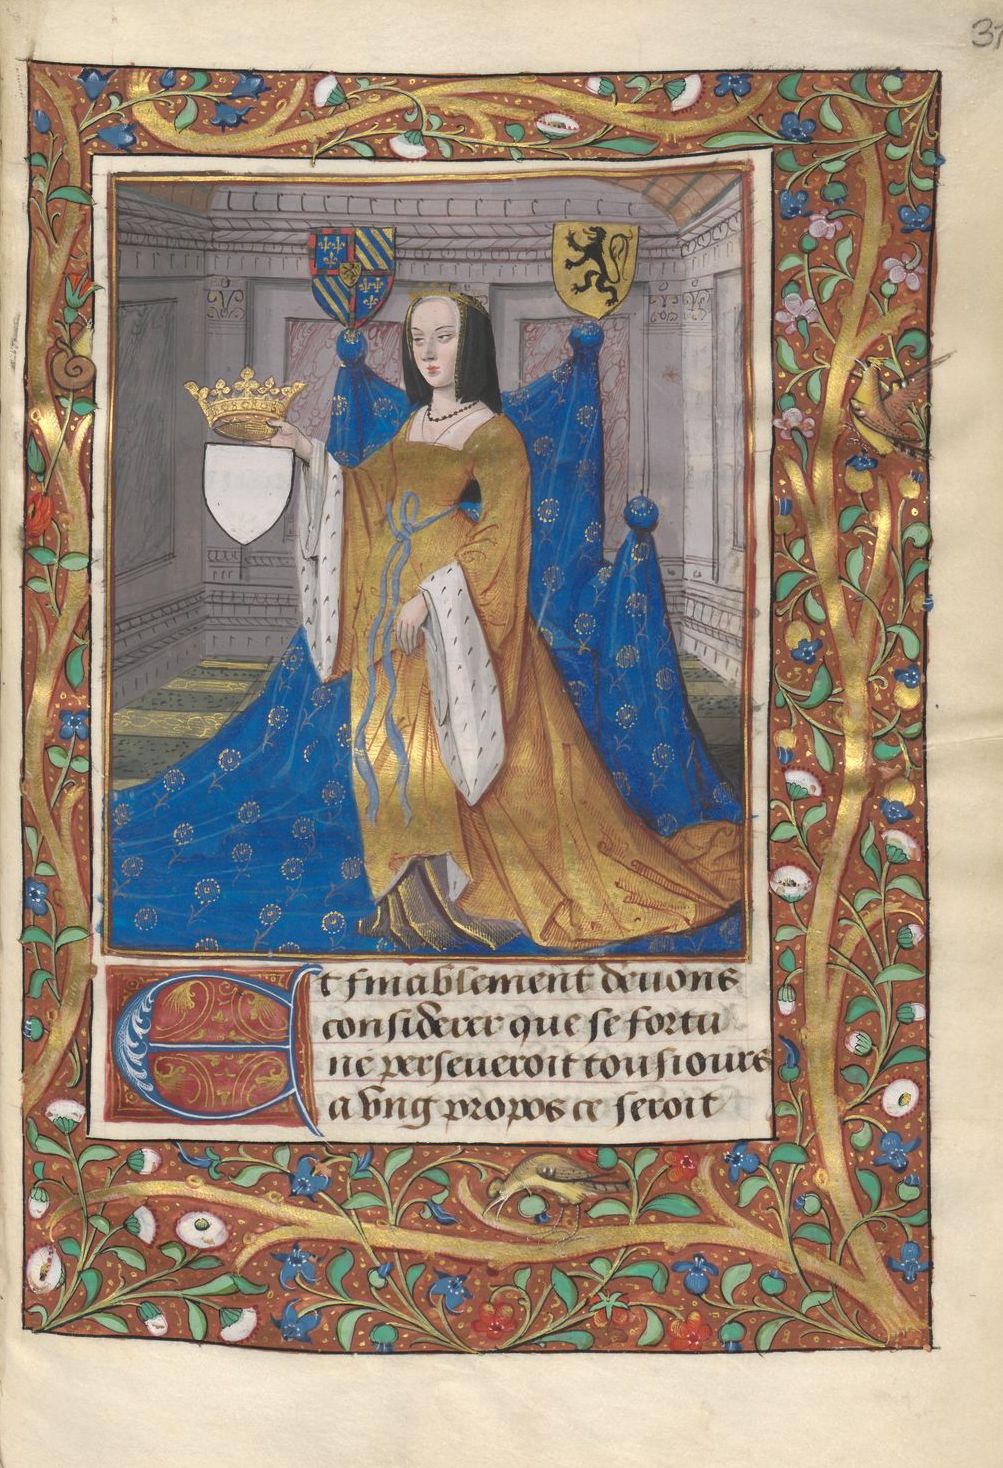 37
Et finablement deuons
considerer que se fortu
ne perseueroit tousiours
a vng propos ce seroit